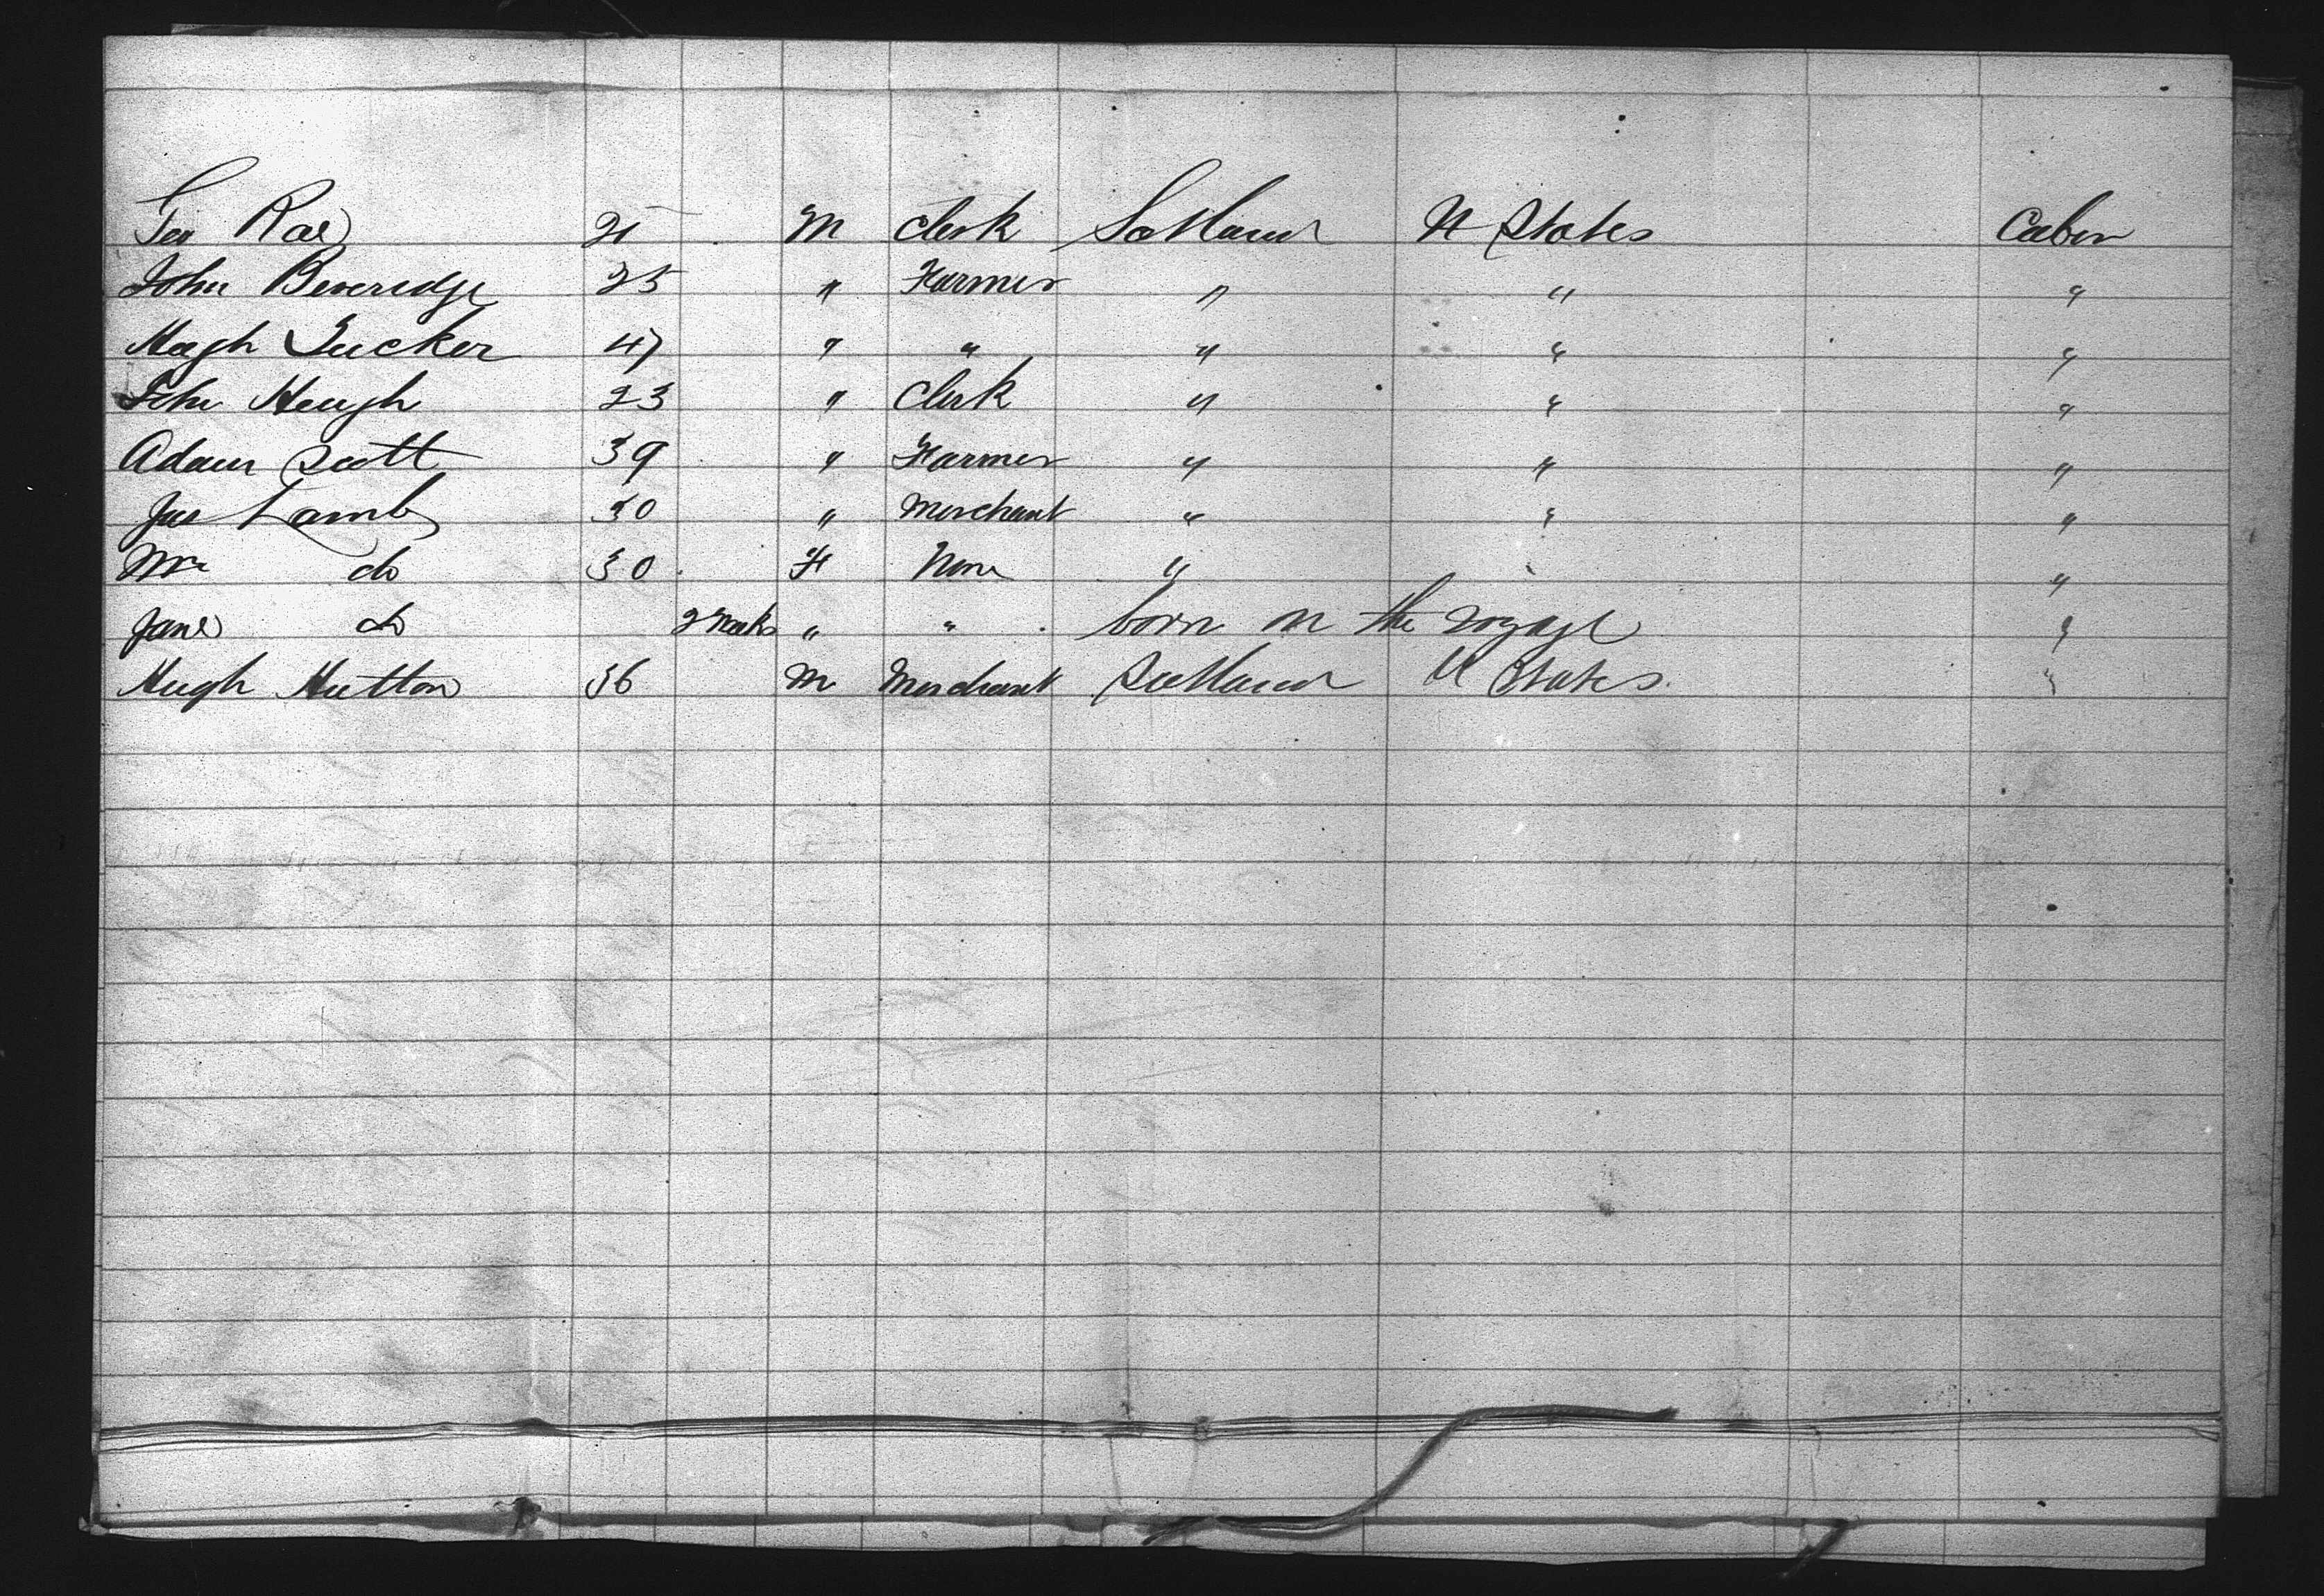 Geo Rae 21 M Clerk Scotland U States Cabin
John Beveridge 25 " Farmer " " "
Hugh Tucker 47 " " " " "
John Heugh 23 " Clerk " " "
Adam Scott 39 " Farmer " " "
Jas Lamb 30 " Merchant " " "
Mrs do 30 F None " "
Jane do 2 Weeks " " born on the voyage "
Hugh Hutton 36 M Merchant Scotland U States "